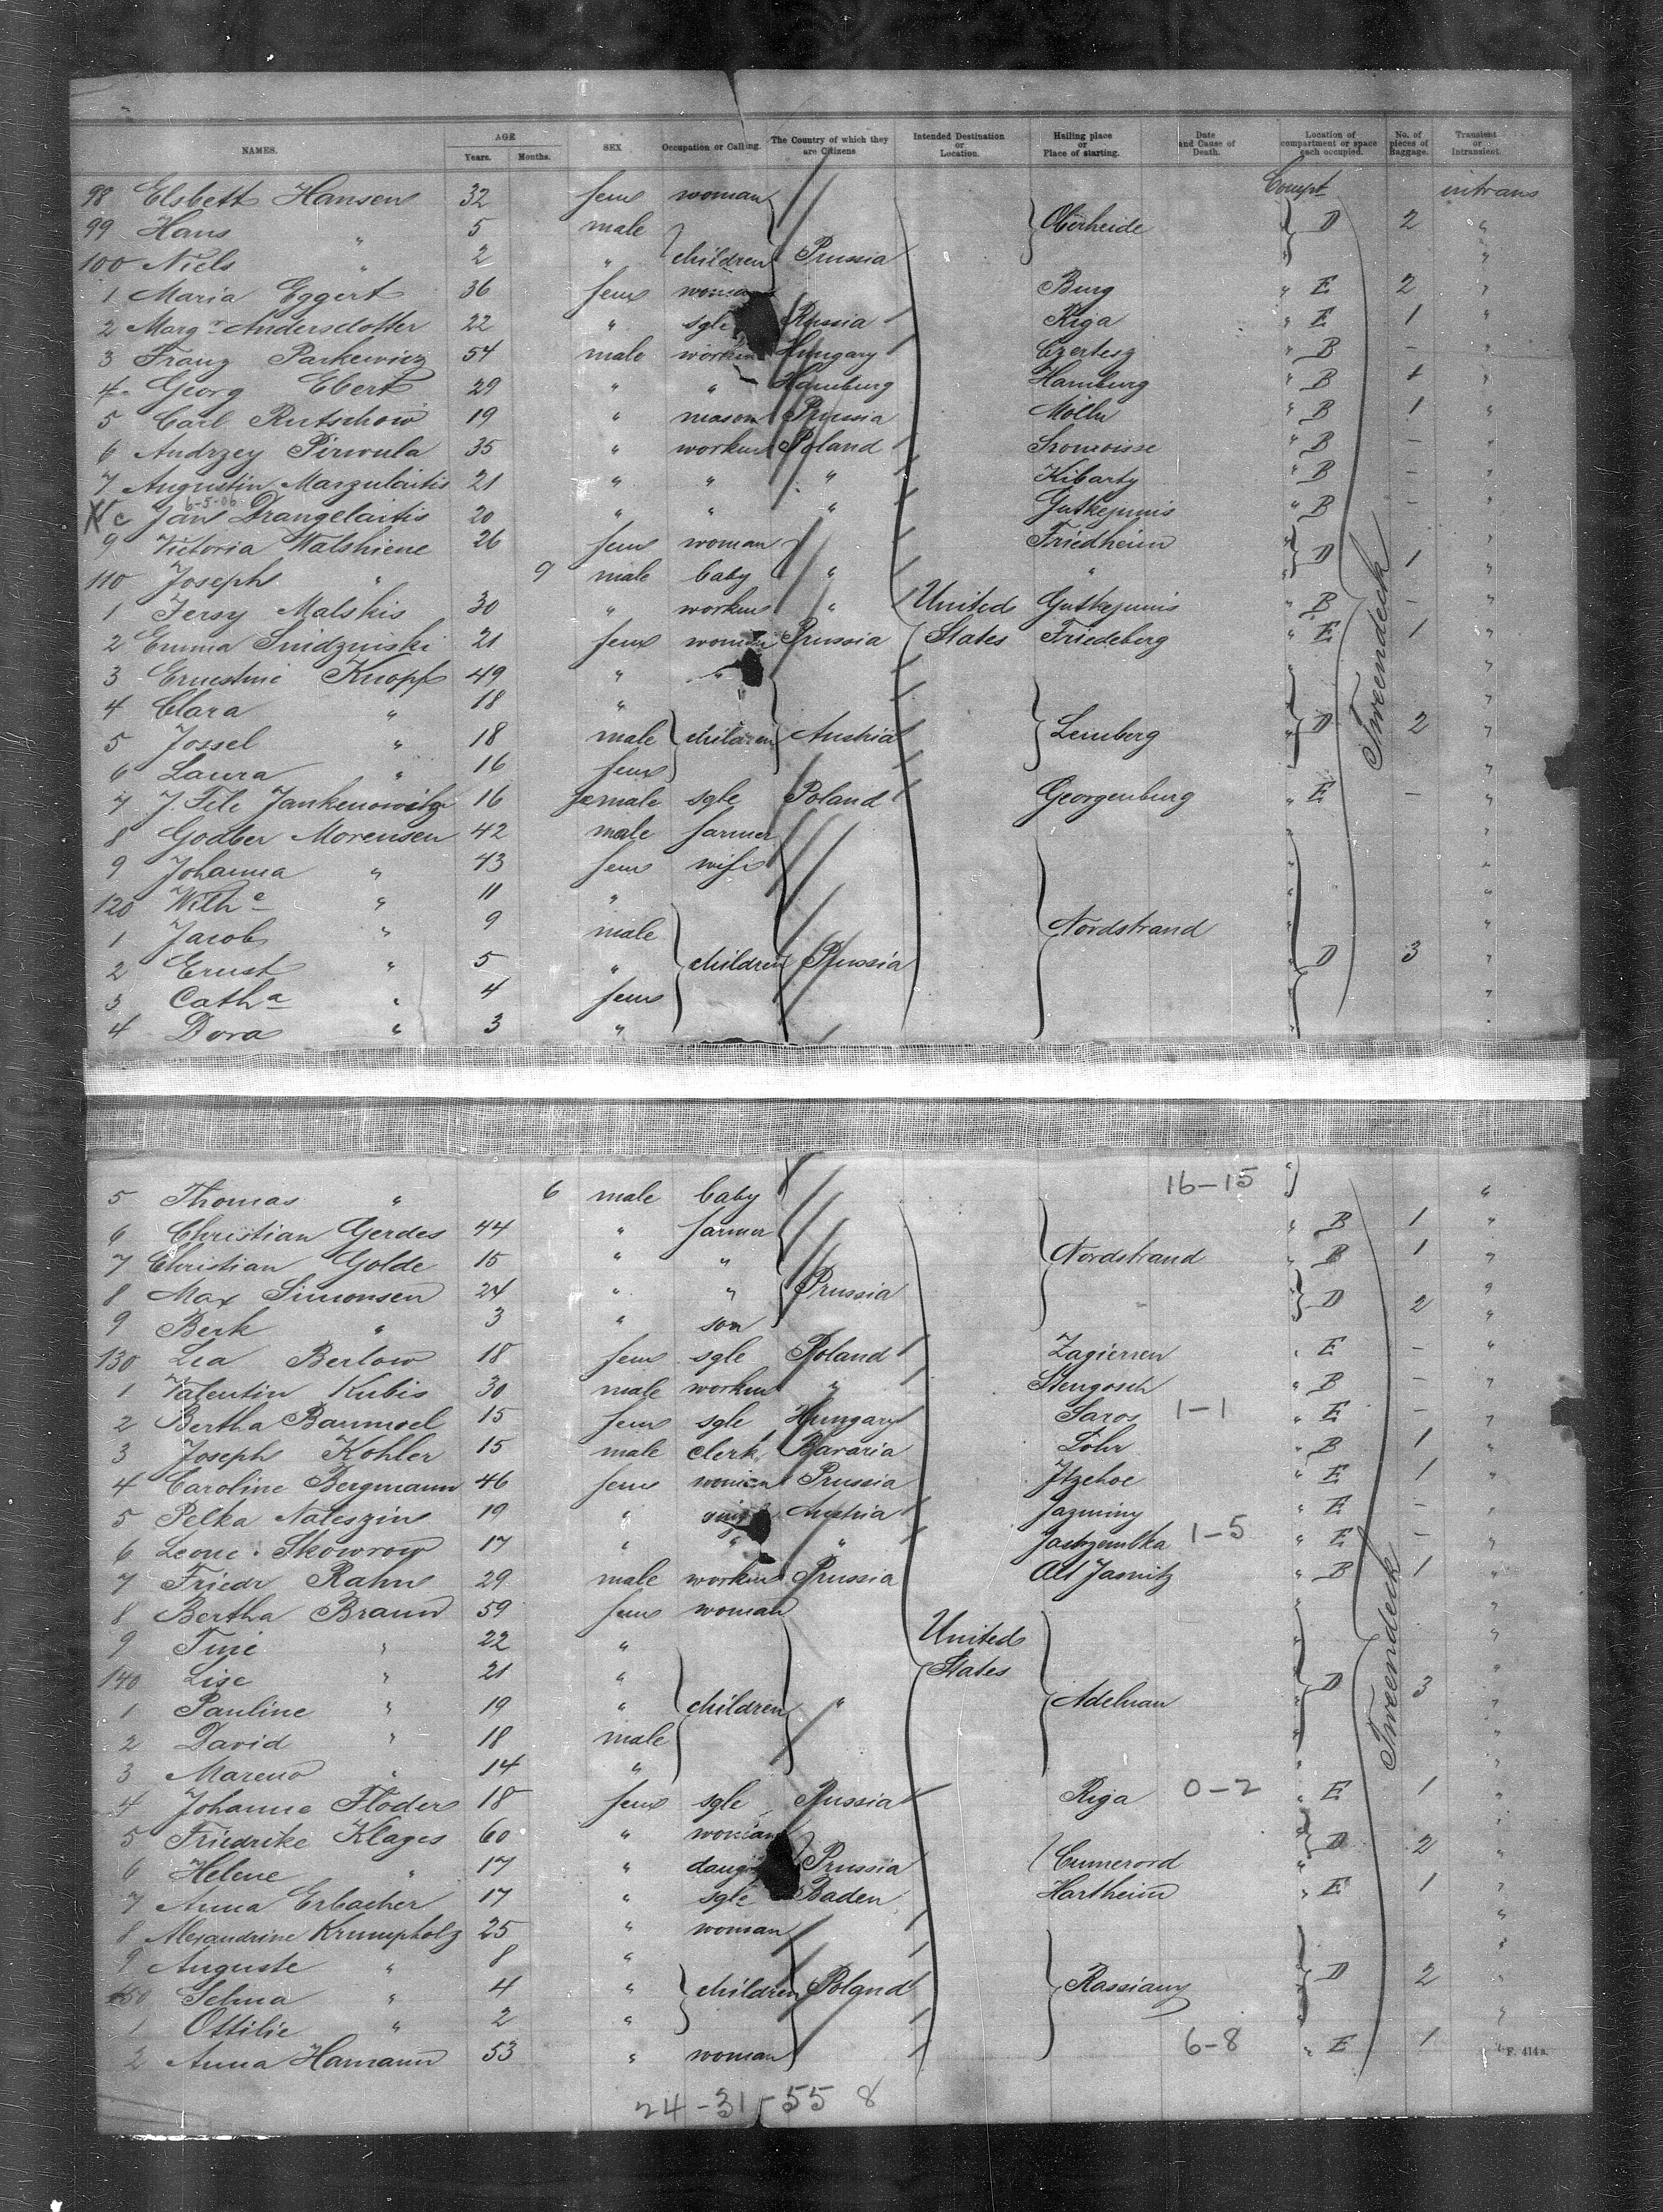 NAMES. AGE Years. Months. SEX Occupation or Calling. The Country of which they are Citizens Intended Destination or Location. Hailing place or Place of starting. Date and Cause of Death. Location of compartment or space each occupied. No. of pieces of Baggage. Transient or Intransient.
98 Elsbett Hansen 32 fem woman Compt intrans
99 Hans " 5 male Oberheide D 2 "
100 Niels " 2 " children Prussia "
1 Maria Eggert 36 fem woman Burg " E 2 "
2 Marg. Andersdotter 22 " sgle Russia Riga " E 1 "
3 Franz Parkewicz 54 male workm Hungary Czertesz " B — "
4 Georg Ebert 29 " " Hamburg Hamburg " B 1 "
5 Carl Rutschow 19 " mason Prussia Mölln " B 1 "
6 Andrzey Pirwula 35 " workm Poland " B — "
7 Augustin Marzulaitis 21 " " " Kibarty " B — "
6-5-06
X c Jan Drangelaitis 20 " " " Gutkejunis " B — "
9 Victoria Walshiene 26 fem woman Friedheim D 1 "
110 Joseph " 9 male baby " " "
1 Jersy Malskis 30 " workm " United Gutkejunis " B — "
2 Emma Smidzinski 21 fem woman Prussia States Friedeberg " E 1 "
3 Ernestine Knopf 49 " " "
4 Clara " 18 " "
5 Jossel " 18 male children Austria Lemberg " D 2 "
6 Laura " 16 fem "
7 J. File Jankenowitz 16 female sgle Poland Georgenburg " E — "
8 Godber Morensen 42 male farmer "
9 Johanna " 43 fem wife "
120 Wilhe " 11 " "
1 Jacob " 9 male Nordstrand "
2 Ernst " 5 " children Prussia D 3 "
3 Catha " 4 fem "
4 Dora " 3 " "
Tweendeck
5 Thomas " 6 male baby 16-15 "
6 Christian Gerdes 44 " farmer " B 1 "
7 Christian Golde 15 " " Nordstrand " B 1 "
8 Max Simonsen 24 " " Prussia D 2 "
9 Berk " 3 " son "
130 Lea Berlow 18 fem sgle Poland Zagierren " E — "
1 Valentin Kubis 30 male workm " Stengosch " B — "
2 Bertha Baumoel 15 fem sgle Hungary Saros 1-1 " E — "
3 Joseph Kohler 15 male clerk Bavaria Lohr " B 1 "
4 Caroline Bergmann 46 fem woman Prussia Itzehoe " E 1 "
5 Pelka Nateszin 19 " Austria Jazminy " E — "
6 Leone Skowrow 17 " " " Jastzembka 1-5 " E — "
7 Friedr Rahn 29 male workm Prussia Alt Jasnitz " B 1 "
8 Bertha Braun 59 fem woman "
9 Tine " 22 " United "
140 Lise " 21 " States D 3 "
1 Pauline " 19 " children " Adelnau "
2 David " 18 male "
3 Mareno " 14 " "
4 Johanne Floder 18 fem sgle Russia Riga 0-2 " E 1 "
5 Friedrike Klages 60 " woman D 2 "
6 Helene " 17 " Prussia Cumerord "
7 Anna Erbacher 17 " sgle Baden Hartheim " E 1 "
8 Alexandrine Krumpholz 25 " woman "
9 Auguste " 8 " "
150 Selma " 4 " children Poland Rassiany D 2 "
1 Ottilie " 2 " "
2 Anna Hamann 53 " woman 6-8 " E 1 "
Tweendeck
F. 414a.
24-31-55 8